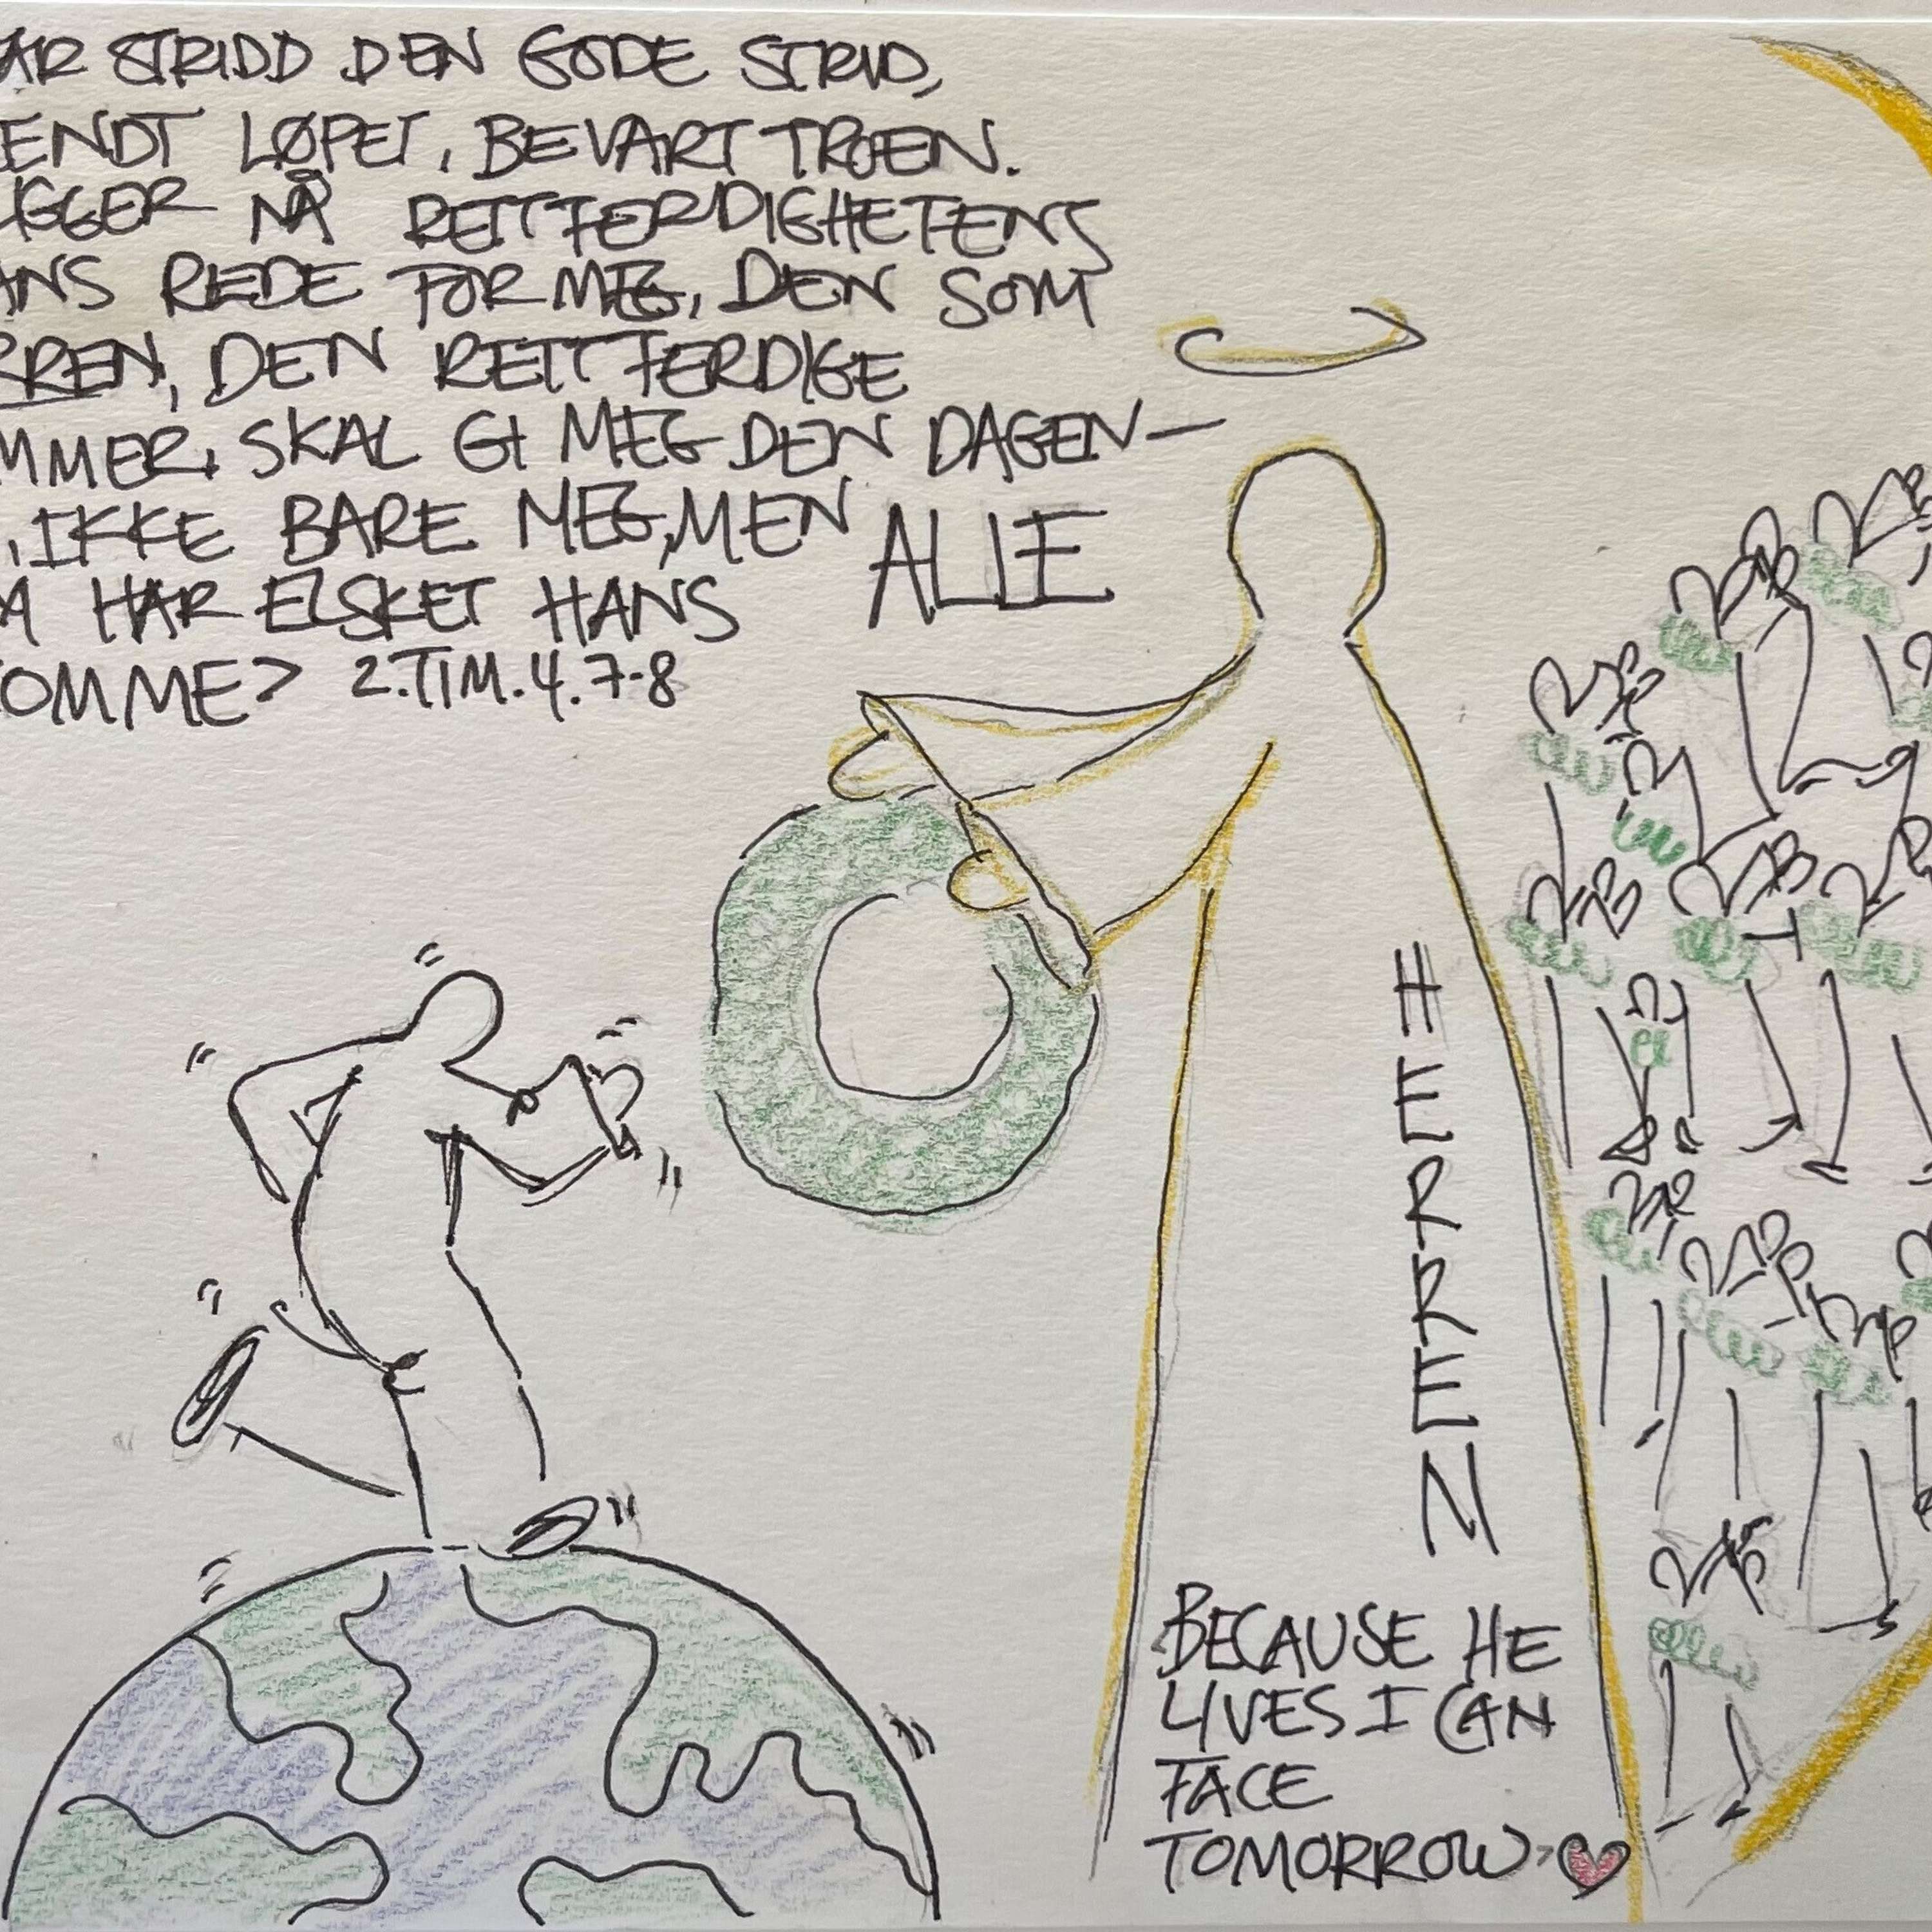 AR STRIDD DEN GODE STRID,
ENDT LØPET, BEVART TROEN.
IGGER NÅ RETTFERDIGHETENS
ANS REDE FOR MEG, DEN SOM
RREN, DEN RETTFERDIGE
MMER, SKAL GI MEG DEN DAGEN—
, IKKE BARE MEG, MEN ALLE
A HAR ELSKET HANS
OMME> 2.TIM.4.7-8
HERREN
BECAUSE HE
LIVES I CAN
FACE
TOMORROW